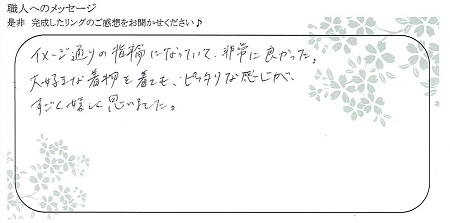 職人へのメッセージ
是非 完成したリングのご感想をお聞かせください♪
イメージ通りの指輪になっていて、非常に良かった。
大好きな着物を着ても、ピッタリな感じが、
すごく嬉しく思いました。